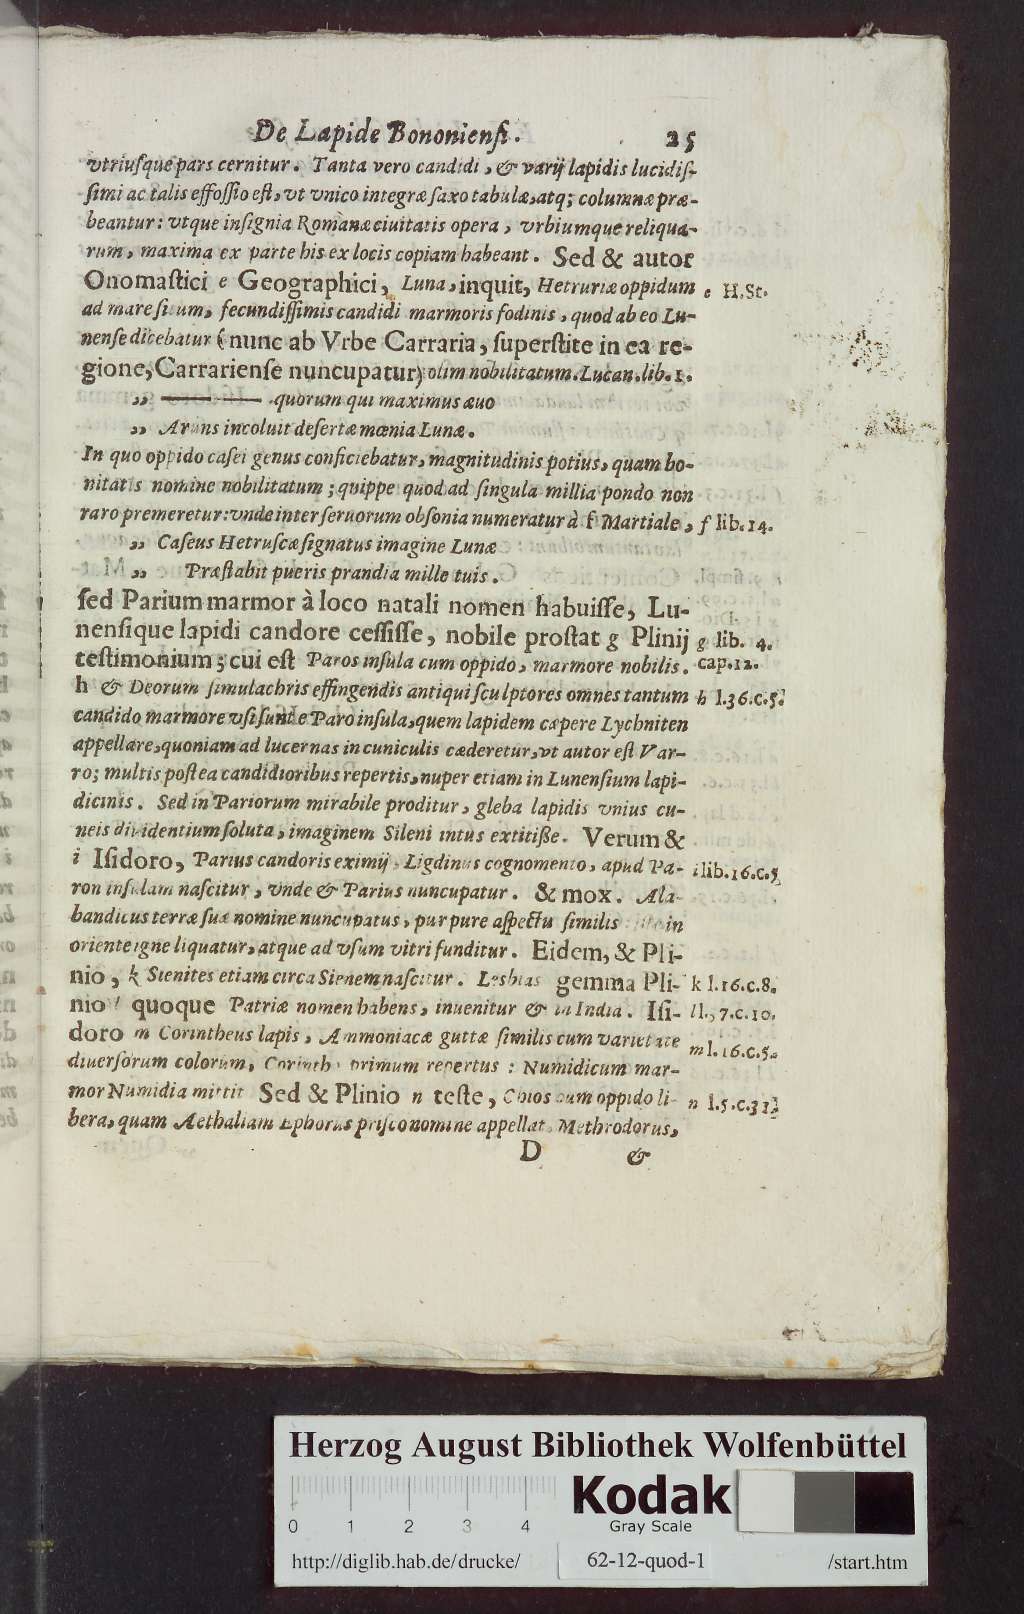 De Lapide Bononiensi. 25
vtriusque pars cernitur. Tanta vero candidi, & varij lapidis lucidis-
simi ac talis effossio est, vt vnico integræ saxo tabulæ, atq; columnæ præ-
beantur: vtque insignia Romanæ ciuitatis opera, vrbiumque reliqua-
rum, maxima ex parte his ex locis copiam habeant. Sed & autor
Onomastici e Geographici, Luna, inquit, Hetruriæ oppidum e H.St.
ad mare situm, fecundissimis candidi marmoris fodinis, quod ab eo Lu-
nense dicebatur (nunc ab Vrbe Carraria, superstite in ea re-
gione, Carrariense nuncupatur) olim nobilitatum. Lucan. lib. 1.
„ —— —— quorum qui maximus æuo
„ Aruns incoluit desertæ mœnia Lunæ.
In quo oppido casei genus conficiebatur, magnitudinis potius, quam bo-
nitatis nomine nobilitatum; quippe quod ad singula millia pondo non
raro premeretur: vnde inter seruorum obsonia numeratur à f Martiale, f lib. 14.
„ Caseus Hetruscæ signatus imagine Lunæ
„ Præstabit pueris prandia mille tuis.
sed Parium marmor à loco natali nomen habuisse, Lu-
nensique lapidi candore cessisse, nobile prostat g Plinij g lib. 4.
testimonium; cui est Paros insula cum oppido, marmore nobilis. cap. 12.
h & Deorum simulachris effingendis antiqui sculptores omnes tantum h l. 36. c. 5.
candido marmore vsi sunt e Paro insula, quem lapidem cæpere Lychniten
appellare, quoniam ad lucernas in cuniculis cæderetur, vt autor est Var-
ro; multis postea candidioribus repertis, nuper etiam in Lunensium lapi-
dicinis. Sed in Pariorum mirabile proditur, gleba lapidis vnius cu-
neis diuidentium soluta, imaginem Sileni intus extitiße. Verum &
i Isidoro, Parius candoris eximij, Ligdinus cognomento, apud Pa- i lib. 16. c. 5
ron insulam nascitur, vnde & Parius nuncupatur. & mox. Ala-
bandicus terræ suæ nomine nuncupatus, purpure aspectu similis in
oriente igne liquatur, atque ad vsum vitri funditur. Eidem, & Pli-
nio, k Sienites etiam circa Sienem nascitur. Lesbias gemma Pli- k l. 16. c. 8.
nio l quoque Patriæ nomen habens, inuenitur & in India. Isi- l l. 37. c. 10.
doro m Corintheus lapis, Ammoniacæ guttæ similis cum varietate m l. 16. c. 5.
diuersorum colorum, Corinthi primum repertus: Numidicum mar-
mor Numidia mittit Sed & Plinio n teste, Chios cum oppido li- n l. 5. c. 31
bera, quam Aethaliam Ephorus prisco nomine appellat, Methrodorus,
D &
Herzog August Bibliothek Wolfenbüttel
0 1 2 3 4
Kodak
Gray Scale
http://diglib.hab.de/drucke/ 62-12-quod-1 /start.htm